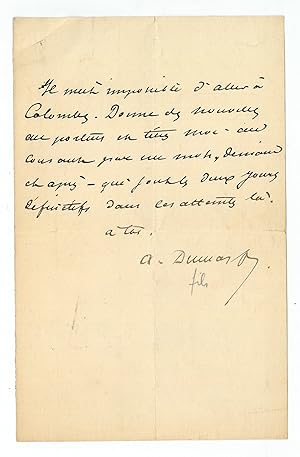 Il m'est impossible d'aller à
Colombes. Donne des nouvelles
au porteur et tiens moi au
courant par un mot, demain
et après - qui sont les deux jours
définitifs dans ces atteintes là.
à toi.
A. Dumas f.
fils